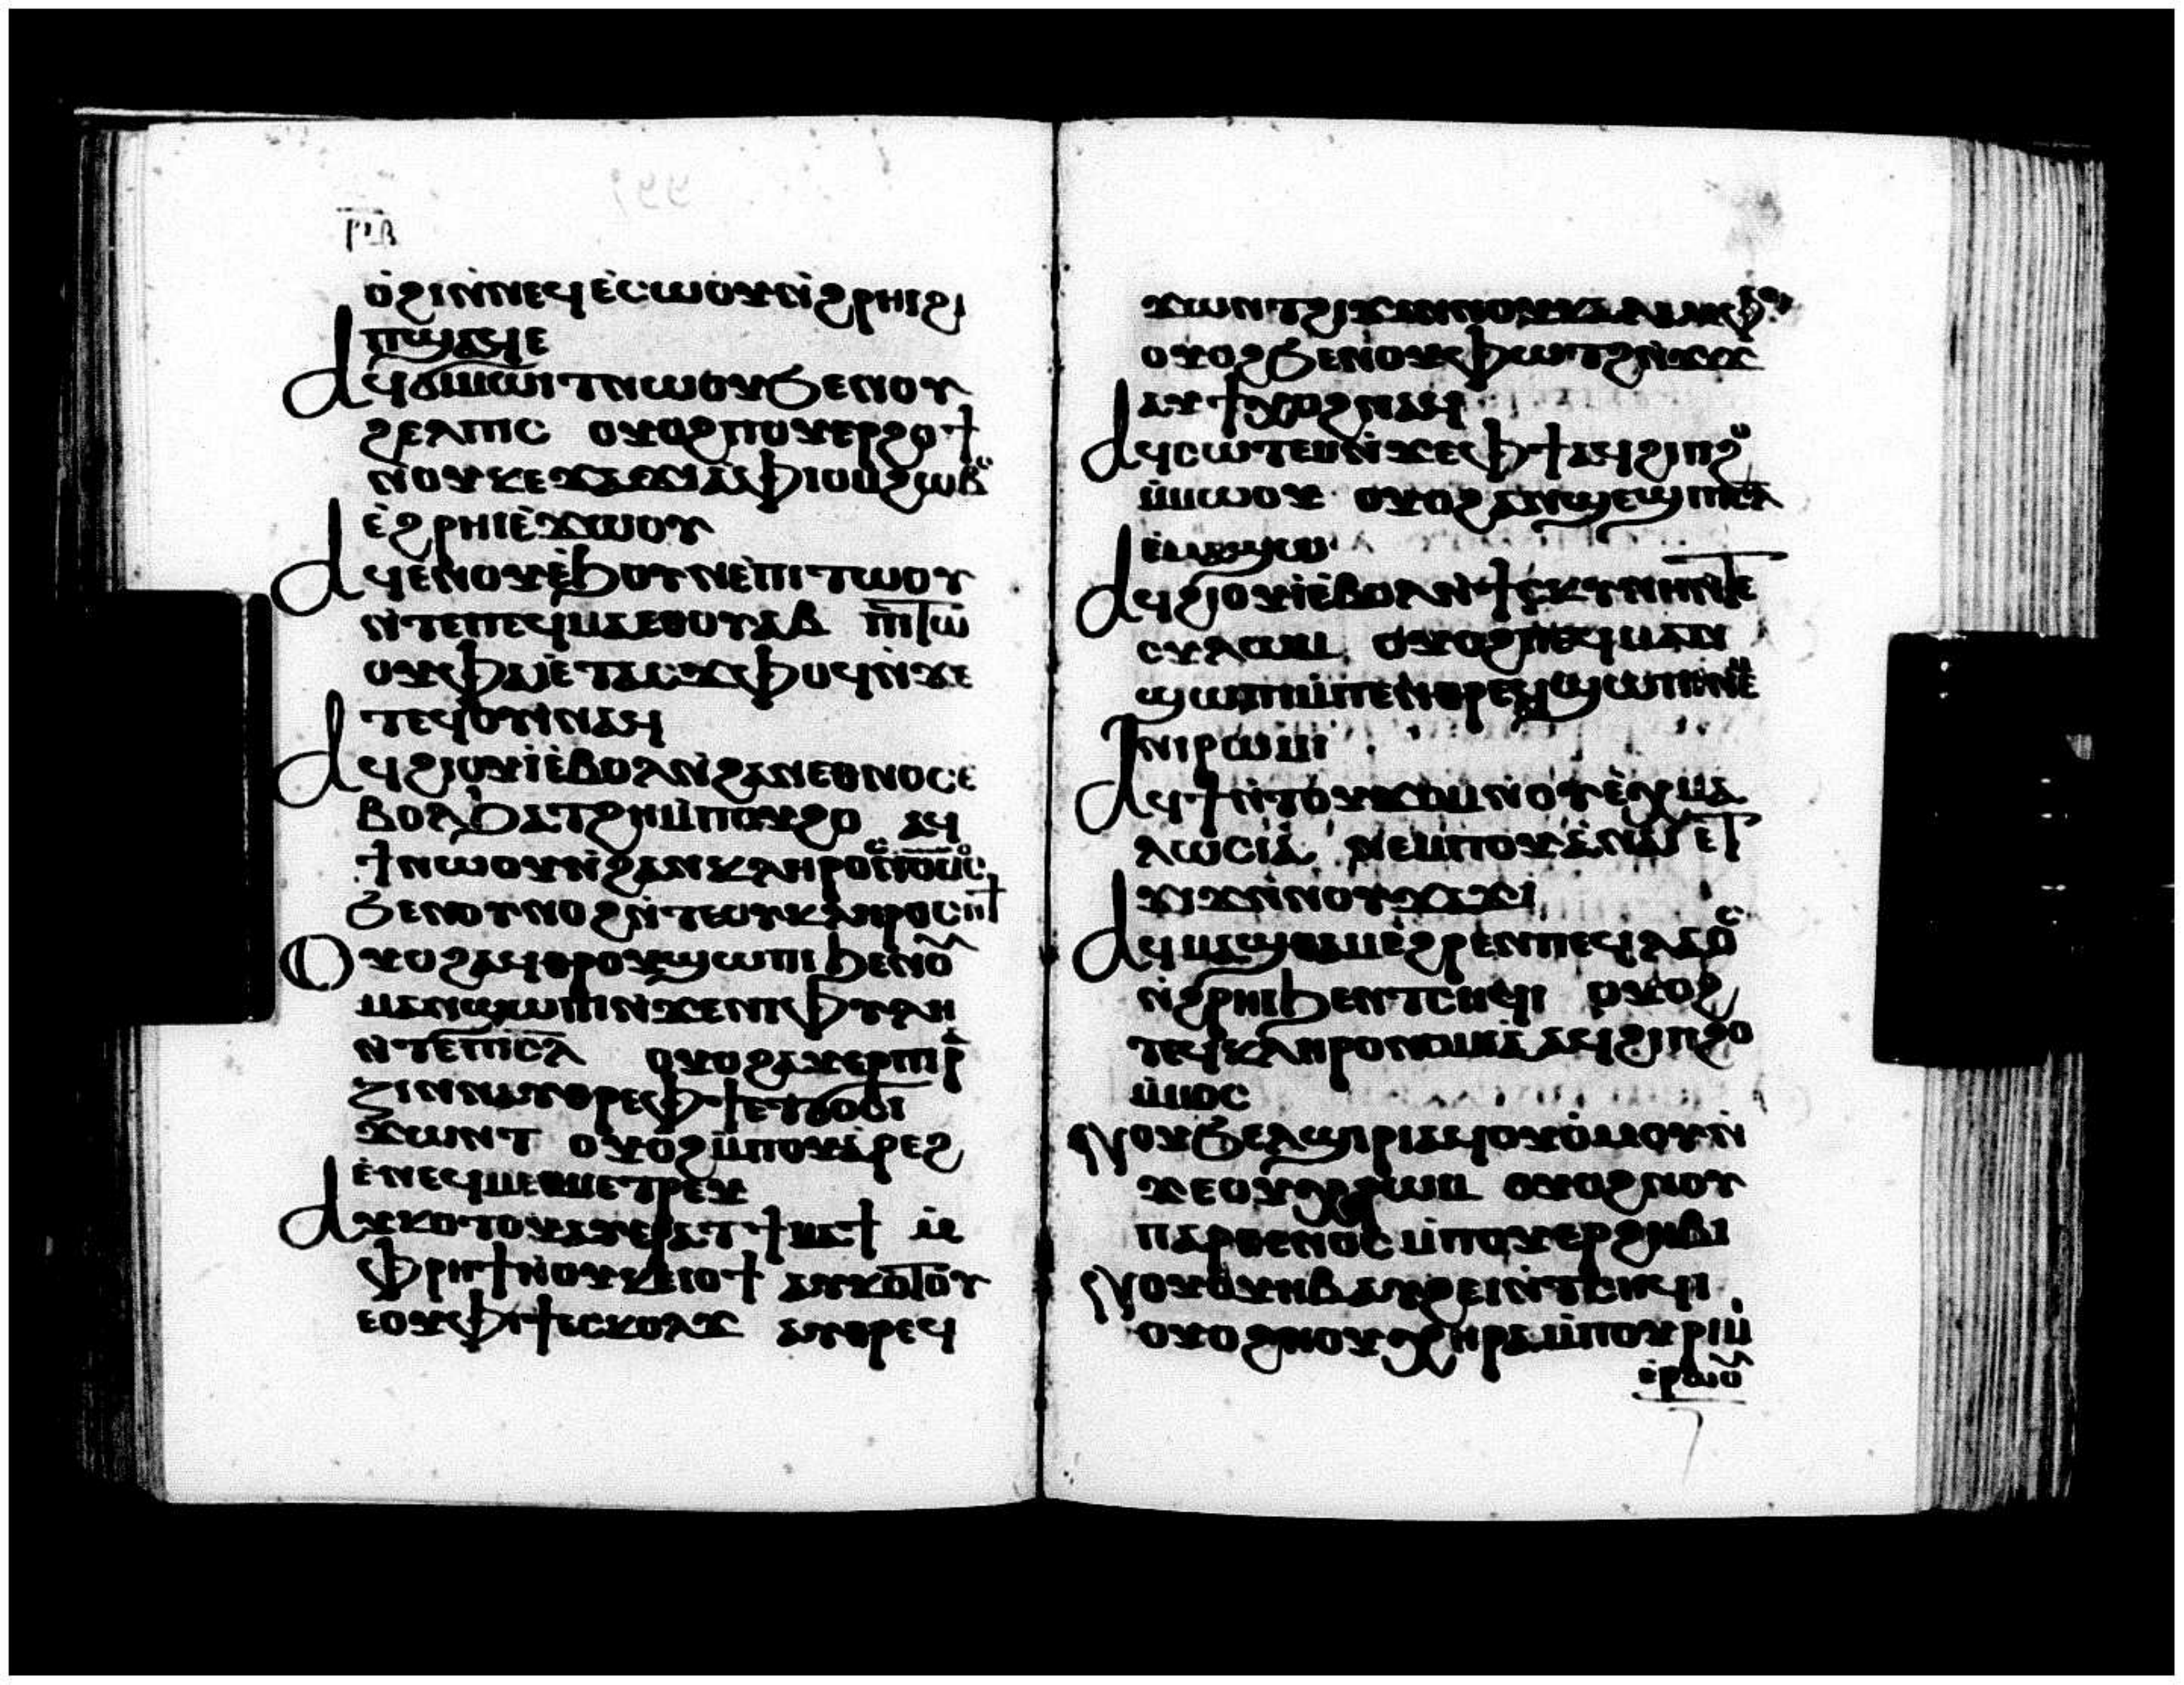 ⲣⲓⲃ
ⲟ̇ϩⲓⲛ̇ⲛⲉϥⲉ̇ⲥⲱⲟⲩⲛ̇ϩⲣⲏⲓϩⲓ
ⲡϣⲁϥⲉ
Ⲁϥϭⲓⲙⲱⲓⲧⲛⲱⲟⲩϧⲉⲛⲟⲩ
ϩⲉⲗⲡⲓⲥ ⲟⲩⲟϩⲙⲡⲟⲩⲉⲣϩⲟϯ
ⲛⲟⲩⲕⲉϫⲁϫⲓⲁⲫⲓⲟⲙϩⲱⲃⲥ
ⲉ̇ϩⲣⲏⲓⲉ̇ϫⲱⲟⲩ
Ⲁϥⲉⲛⲟⲩⲉ̇ϧⲟⲩⲛⲉ̇ⲡⲓⲧⲱⲟⲩ
ⲛ̇ⲧⲉⲡⲉϥⲙⲁⲉⲑⲟⲩⲁⲃ ⲡⲓⲧⲱ
ⲟⲩⲫⲁⲓⲉ̇ⲧⲁⲥϫⲫⲟϥⲛ̇ϫⲉ
ⲧⲉϥⲟⲩⲓⲛⲁⲙ
Ⲁϥϩⲓⲟⲩⲓⲉ̇ⲃⲟⲗⲛ̇ϩⲁⲛⲉⲑⲛⲟⲥⲉ̇
ⲃⲟⲗϧⲁⲧϩⲏⲙ̇ⲡⲟⲩϩⲟ ⲁϥ
ϯⲛⲱⲟⲩⲛ̇ϩⲁⲛⲕⲗⲏⲣⲟⲥ
ϧⲉⲛⲟⲩⲛⲟϩⲛ̇ⲧⲉⲟⲩⲕⲗⲏⲣⲟⲥⲛϯ
Ⲟⲩⲟϩⲁϥⲑⲣⲟⲩϣⲱⲡⲓϧⲉⲛⲟ
ⲙⲁⲛϣⲱⲡⲓⲛ̇ϫⲉⲛⲓⲫⲩⲗⲏ
ⲛ̇ⲧⲉⲡⲓⲥⲗ ⲟⲩⲟϩⲁⲩⲉⲣⲡⲓⲣ
ⲍⲓⲛⲛⲁⲩⲑⲣⲉⲫϯⲉⲧϭⲟⲥⲓ
ϫⲱⲛⲧ ⲟⲩⲟϩⲙ̇ⲡⲟⲩⲁ̇ⲣⲉϩ
ⲉ̇ⲛⲉϥⲙⲉⲧⲙⲉⲑⲣⲉⲩ
Ⲁⲩⲕⲟⲧⲟⲩⲁⲩⲉⲣⲁⲧϯⲙⲁϯ ⲙ̇
ⲫⲣⲏϯⲛ̇ⲟⲩⲕⲉⲓⲟϯ ⲁⲩⲕⲟⲧⲟⲩ
ⲉⲟⲩⲫⲓϯⲉⲥⲕⲟⲗϫ ⲁⲩⲑⲣⲉϥ
ϫⲱⲛⲧϩⲓϫⲉⲛⲛⲟⲩⲕⲁⲗⲁⲙⲫⲟ
ⲟⲩⲟϩϧⲉⲛⲟⲩⲫⲱⲧϩⲛ̇ϫⲓϫ
ⲁⲩϯⲭⲟϩⲛⲁϥ
Ⲁϥⲥⲱⲧⲉⲙⲛ̇ϫⲉⲫϯⲁϥϩⲓⲡϩⲟ
ⲙ̇ⲙⲱⲟⲩ ⲟⲩⲟϩⲁϥϣⲉϣⲡⲓⲥⲗ
ⲉⲙⲁϣⲱ
Ⲁϥϩⲓⲟⲩⲓⲉ̇ⲃⲟⲗⲛ̇ϯⲥⲕⲩⲛⲏⲛⲧⲉ
ⲥⲩⲗⲱⲙ ⲟⲩⲟϩⲡⲉϥⲙⲁⲛ
ϣⲱⲡⲓⲙ̇ⲡⲉⲛⲑⲣⲉϥϣⲱⲡⲓⲛⲉⲙ
ⲛⲓⲣⲱⲙⲓ
Ⲁϥϯⲛ̇ⲧⲟⲩϫⲟⲙⲛ̇ⲟⲩⲉ̇ⲭⲙⲁ
ⲗⲱⲥⲓⲁ ⲛⲉⲙⲡⲟⲩⲥⲁⲓ ⲉⲧ
ϫⲓϫⲛ̇ⲛⲟⲩϫⲁϫⲓ
Ⲁϥⲙⲁϣⲑⲁⲙⲉ̇ϩⲣⲉⲛⲡⲉϥⲗⲁⲟⲥ
ⲛ̇ϩⲣⲏⲓϧⲉⲛⲧⲥⲏϥⲓ ⲟⲩⲟϩ
ⲧⲉϥⲕⲗⲏⲣⲟⲛⲟⲙⲓⲁ ⲁϥϩⲓⲡϩⲟ
ⲙ̇ⲙⲟⲥ
Ⲛⲟⲩϧⲉⲗϣⲓⲣⲓⲁϥⲟⲩⲟⲙⲟⲩⲛ̇
ϫⲉⲟⲩⲭⲣⲱⲙ ⲟⲩⲟϩⲛⲟⲩ
ⲡⲁⲣⲑⲉⲛⲟⲥⲙ̇ⲡⲟⲩⲉⲣϩⲏⲃⲓ
Ⲛⲟⲩⲟⲩⲏⲃⲁⲩϩⲉⲓⲛ̇ⲧⲥⲏϥⲓ
ⲟⲩⲟϩⲛⲟⲩⲭⲏⲣⲁⲙ̇ⲡⲟⲩⲣⲓⲙ
ⲉⲣⲱⲟⲩ